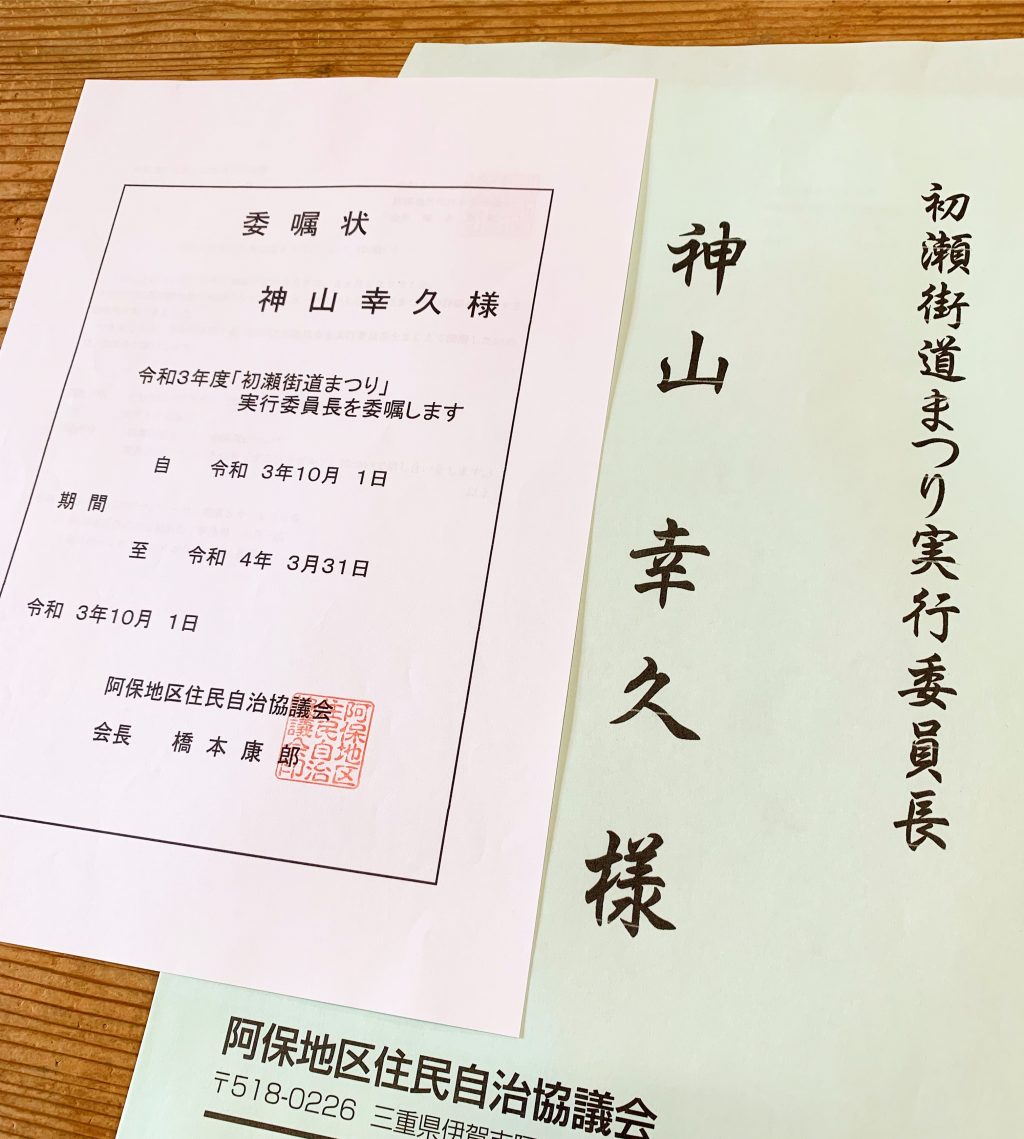 委嘱状
神山幸久様
令和3年度「初瀬街道まつり」
実行委員長を委嘱します
自 令和 3年10月 1日
期間
至 令和 4年 3月31日
令和 3年10月 1日
阿保地区住民自治協議会
会長 橋本康郎
阿保地区
住民自治
協議会印
初瀬街道まつり実行委員長
神山 幸久 様
阿保地区住民自治協議会
〒518-0226 三重県伊賀市